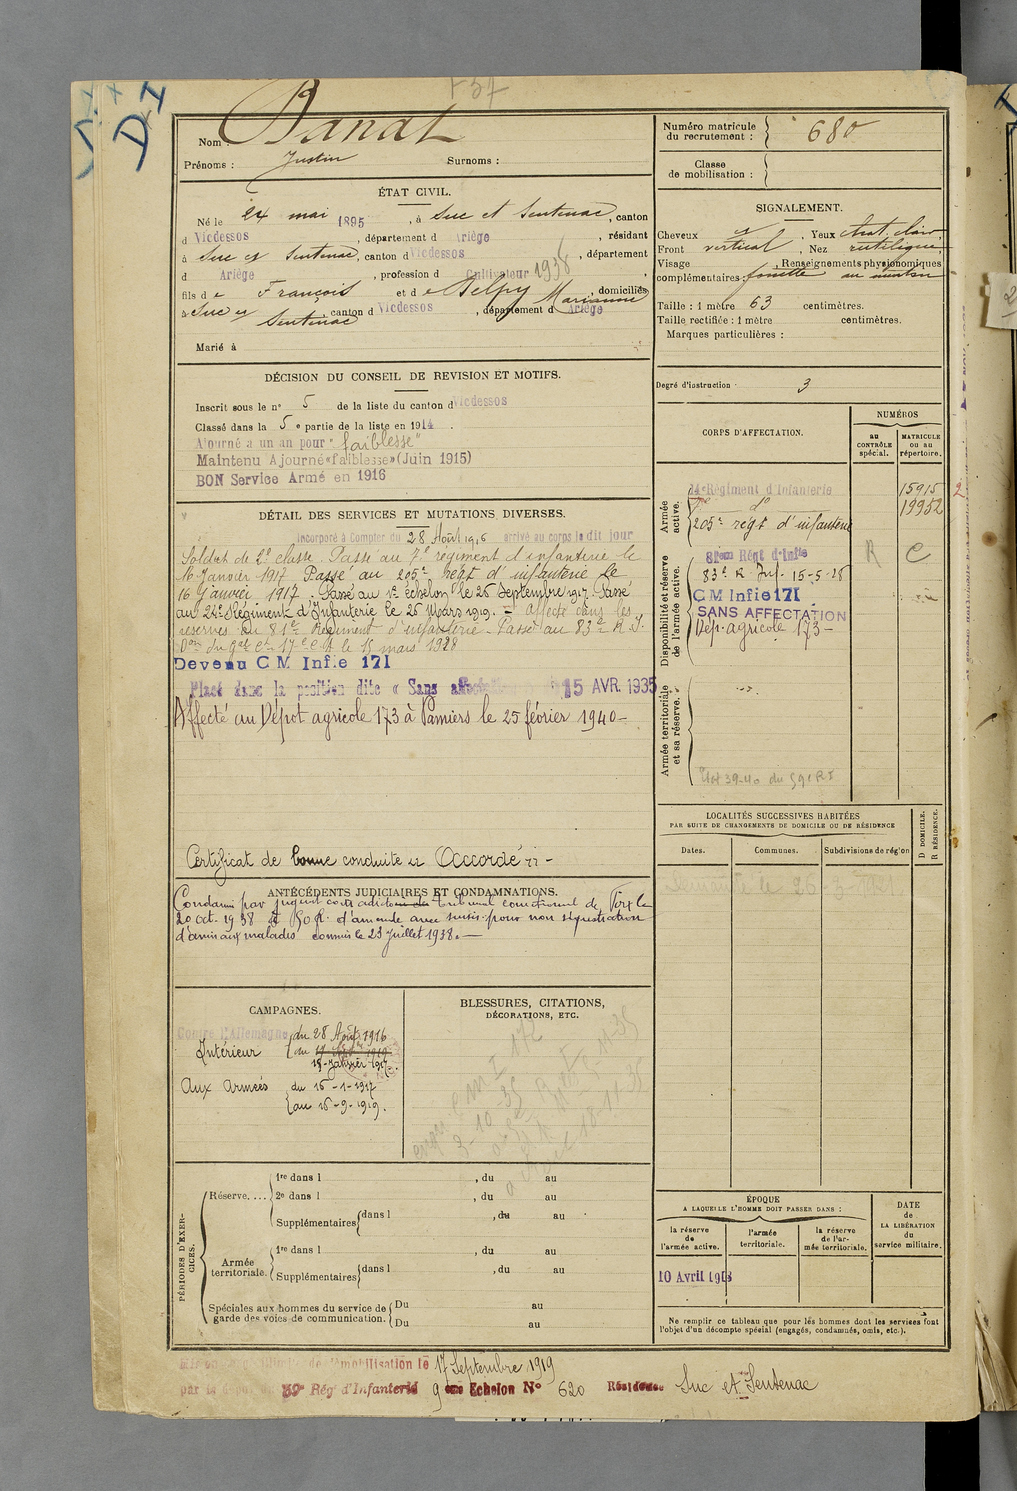 D I
F 37
Nom Banat
Prénoms : Justin Surnoms :
Numéro matricule du recrutement : 680
Classe de mobilisation :
ÉTAT CIVIL.
Né le 24 mai 1895, à Suc et Sentenac, canton
d Vicdessos, département d Ariège, résidant
à Suc et Sentenac, canton d Vicdessos, département
d Ariège, profession d Cultivateur 1938,
fils de François et de Delpy Marianne, domiciliés
à Suc et Sentenac, canton d Vicdessos, département d Ariège
Marié à
SIGNALEMENT.
Cheveux, Yeux chat. clair,
Front vertical, Nez rectiligne
Visage, Renseignements physionomiques
complémentaires : fossette au menton
Taille : 1 mètre 63 centimètres.
Taille rectifiée : 1 mètre centimètres.
Marques particulières :
Degré d'instruction : 3
DÉCISION DU CONSEIL DE REVISION ET MOTIFS.
Inscrit sous le n° 5 de la liste du canton d Vicdessos
Classé dans la 5e partie de la liste en 1914.
Ajourné à un an pour "faiblesse"
Maintenu Ajourné «faiblesse» (Juin 1915)
BON Service Armé en 1916
DÉTAIL DES SERVICES ET MUTATIONS DIVERSES.
Incorporé à Compter du 28 Août 1916 arrivé au corps le dit jour
Soldat de 2e classe. Passé au 7e régiment d'infanterie le
16 Janvier 1917 Passé au 205e Régt d'infanterie le
16 Janvier 1917. Passé au 1er échelon le 26 Septembre 1917 Passé
au 24e Régiment d'Infanterie le 26 Mars 1919. - Affecté dans les
réserves du 81e Régiment d'infanterie - Passé au 83e R.I.
le 15 mars 1928
Devenu C M Infie 171
Placé dans la position dite « Sans affectation 15 AVR. 1935
Affecté au Dépot agricole 173 à Pamiers le 25 février 1940 -
Certificat de bonne conduite "Accordé" -
CORPS D'AFFECTATION.
NUMÉROS
au CONTRÔLE spécial.
MATRICULE ou au répertoire.
Armée active.
14e Régiment d'Infanterie 15915
7e do 19952
205e régt d'infanterie
Disponibilité et réserve de l'armée active.
81em Régt d'Infie R C
83e R. Inf. 15-5-28
C M Infie 171
SANS AFFECTATION
Dép. agricole 173 -
Armée territoriale et sa réserve.
LOCALITÉS SUCCESSIVES HABITÉES
PAR SUITE DE CHANGEMENTS DE DOMICILE OU DE RÉSIDENCE
D DOMICILE.
R RÉSIDENCE.
Dates. Communes. Subdivisions de région
ANTÉCÉDENTS JUDICIAIRES ET CONDAMNATIONS.
Condamné par jugmt contradictoire du tribunal correctionnel de Foix le
20 oct. 1938 à 50 f. d'amende avec sursis pour non séquestration
d'animaux malades commis le 23 Juillet 1938. -
CAMPAGNES.
Contre l'Allemagne du 28 Août 1916
Intérieur au 15 Janvier 1917
Aux Armées du 16-1-1917
au 16-9-1919.
BLESSURES, CITATIONS,
DÉCORATIONS, ETC.
PÉRIODES D'EXERCICES.
Réserve.... 1re dans l , du au
2e dans l , du au
Supplémentaires dans l , du au
Armée territoriale. 1re dans l , du au
Supplémentaires dans l , du au
Spéciales aux hommes du service de garde des voies de communication. Du au
Du au
ÉPOQUE
A LAQUELLE L'HOMME DOIT PASSER DANS :
la réserve de l'armée active.
l'armée territoriale.
la réserve de l'armée territoriale.
DATE de LA LIBÉRATION du service militaire.
10 Avril 1918
Ne remplir ce tableau que pour les hommes dont les services font
l'objet d'un décompte spécial (engagés, condamnés, omis, etc.).
démobilisation le 17 Septembre 1919
Rég d'Infanterie 9 eme Echelon N° 620 Résidence Suc et Sentenac